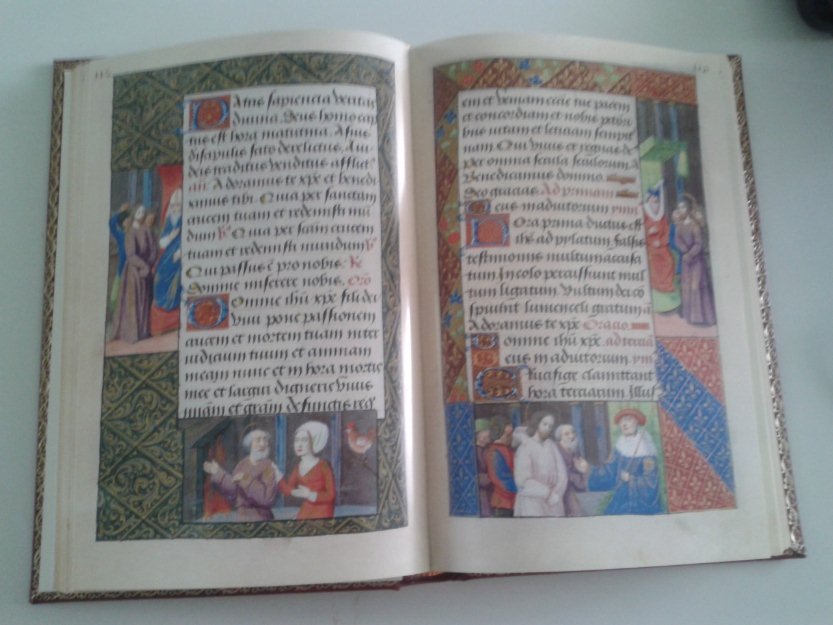 115
Patris sapiencia veritas
divina. Deus homo cap
tus est hora matutina. A suis
discipulis cito derelictus. A iu
deis traditus venditus afflict9
añ. Adoramus te xp̄e et benedi
ximus tibi. Quia per sanctam
crucem tuam et redemisti mū
dum. Quia per sctam crucem
tuam et redemisti mundum
Qui passus ē pro nobis.
Domine miserere nobis. Orō
Domine ihū xp̄e fili dei
vivi pone passionem
crucem et mortem tuam inter
iudicium tuum et animam
meam nunc et in hora mortis
mee et largiri digneris vivis
miam et gr̄am defunctis req̄
em et veniam ecclie tue pacem
et concordiam et nobis pctori
bus vitam et leticiam sempit
nam. Qui vivis et regnas de9
per omnia secula seculorum. A
Benedicamus domino.
Deo gracias. Ad primam
Deus in adiutorium ymn9
Hora prima ductus est
ihs ad pylatum. falsis
testimoniis multum accusa
tum. In colo percussiunt mul
tum ligatum. Vultum dei cō
spuunt lumen celi gratum ā
Adoramus te xp̄e. Oracio
Domine ihū xp̄e. ad tercia
Deus in adiutorium. ym
Crucifige clamittant
hora terciarum. Illus9